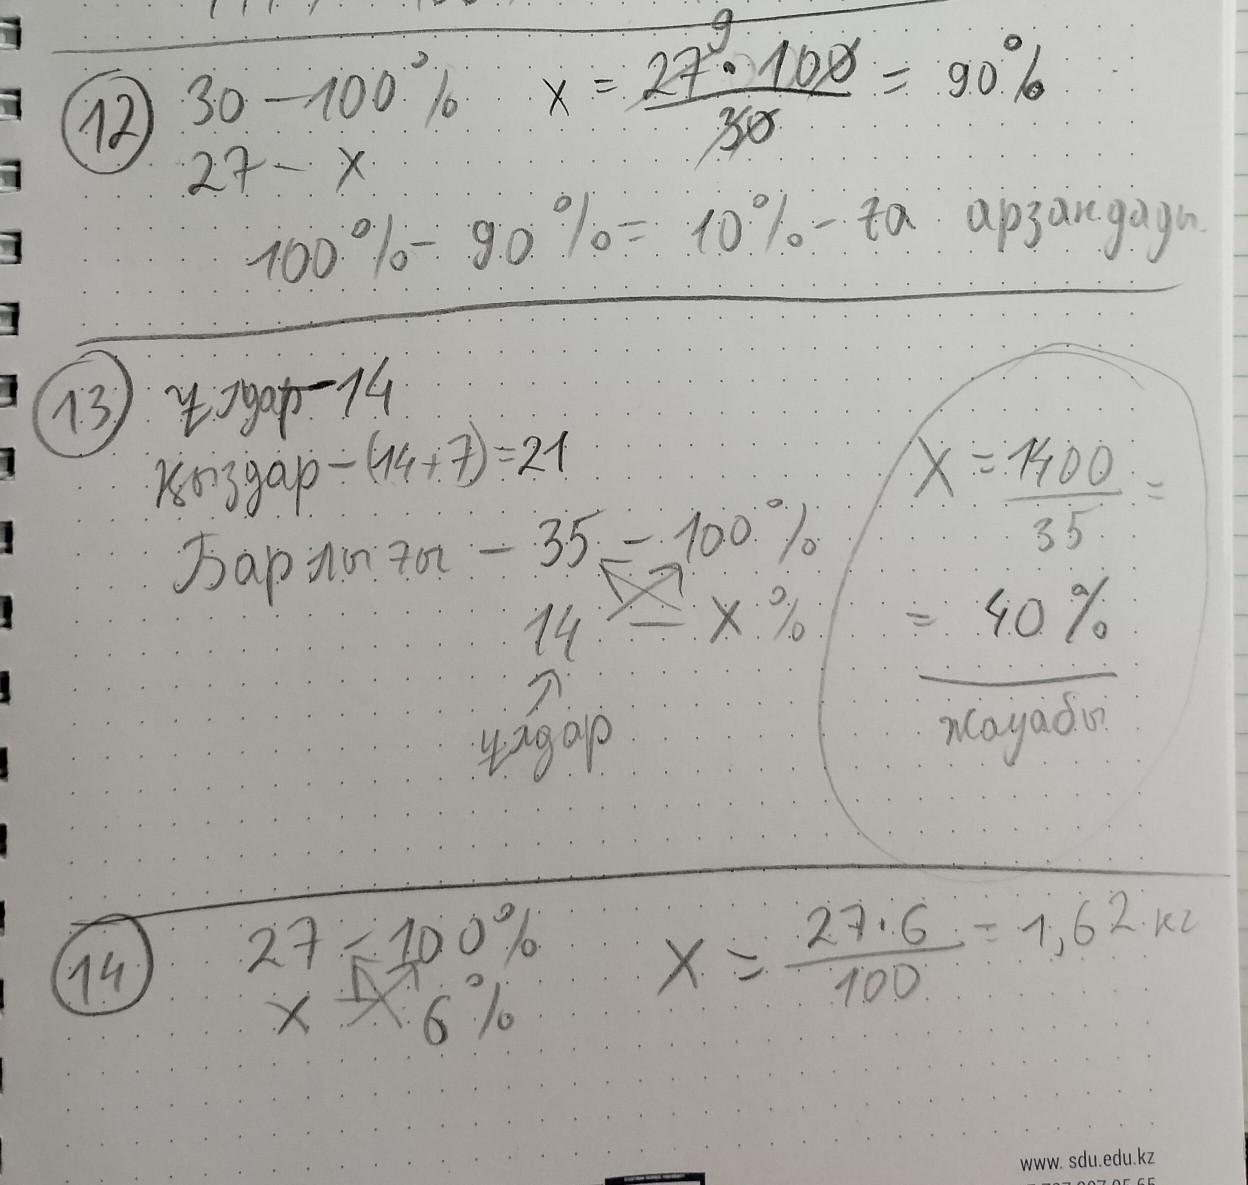 12 30 – 100% x = 27 · 100 / 30 = 90%
9
27 – x
100% – 90% = 10% – ға арзандады.
13 ұлдар – 14
қыздар – (14+7) = 21
x = 1400 / 35 =
Барлығы – 35 – 100%
14 – x %
= 40%
ұлдар
жауабы
14 27 – 100% x = 27·6 / 100 = 1,62 кг
x 6%
www. sdu.edu.kz